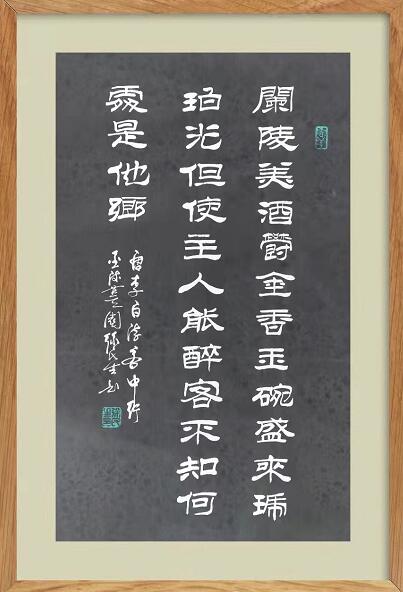 蘭陵美酒鬱金香玉碗盛來琥
珀光但使主人能醉客不知何
處是他鄉
書李白詩客中行